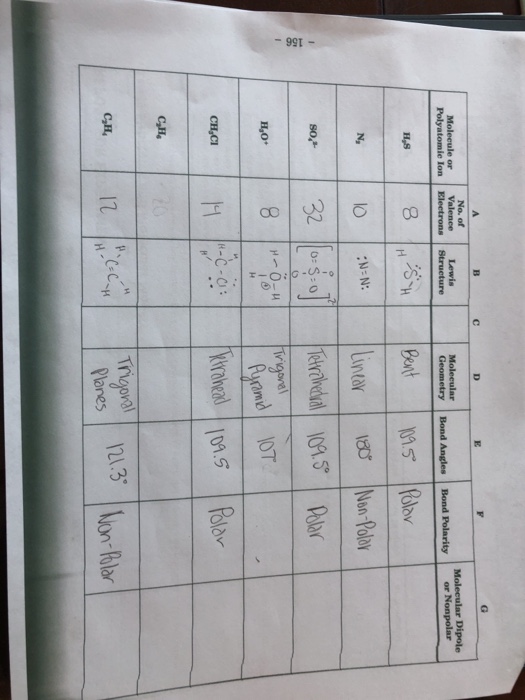 A B C D E F G
Molecule or Polyatomic Ion No. of Valence Electrons Lewis Structure Molecular Geometry Bond Angles Bond Polarity Molecular Dipole or Nonpolar
H₂S 8 H-S-H Bent 109.5° Polar
N₂ 10 :N=N: Linear 180° Non-Polar
SO₄²⁻ 32 [O=S=O]² Tetrahedral 109.5° Polar
H₃O⁺ 8 H-O-H H Trigonal Pyramid 107
CH₃Cl 14 H-C-Cl: Tetrahead 109.5 Polar
C₂H₆
C₂H₄ 12 H C=C H H H Trigonal Planes 121.3° Non-Polar
- 156 -